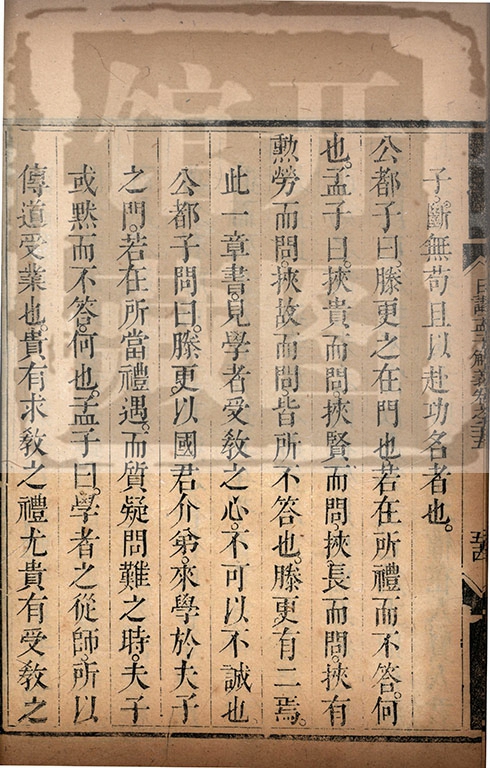 日講孟子解義卷之
子斷無苟且以赴功名者也。
公都子曰。滕更之在門也若在所禮而不答。何
也。孟子曰。挾貴而問。挾賢而問。挾長而問。挾有
勲勞而問。挾故而問。皆所不答也。滕更有二焉。
此一章書。見學者受敎之心。不可以不誠也
公都子問曰。滕更以國君介弟。來學於夫子
之門。若在所當禮遇。而質疑問難之時。夫子
或黙而不答。何也。孟子曰。學者之從師。所以
傳道受業也。貴有求敎之禮尤貴有受敎之